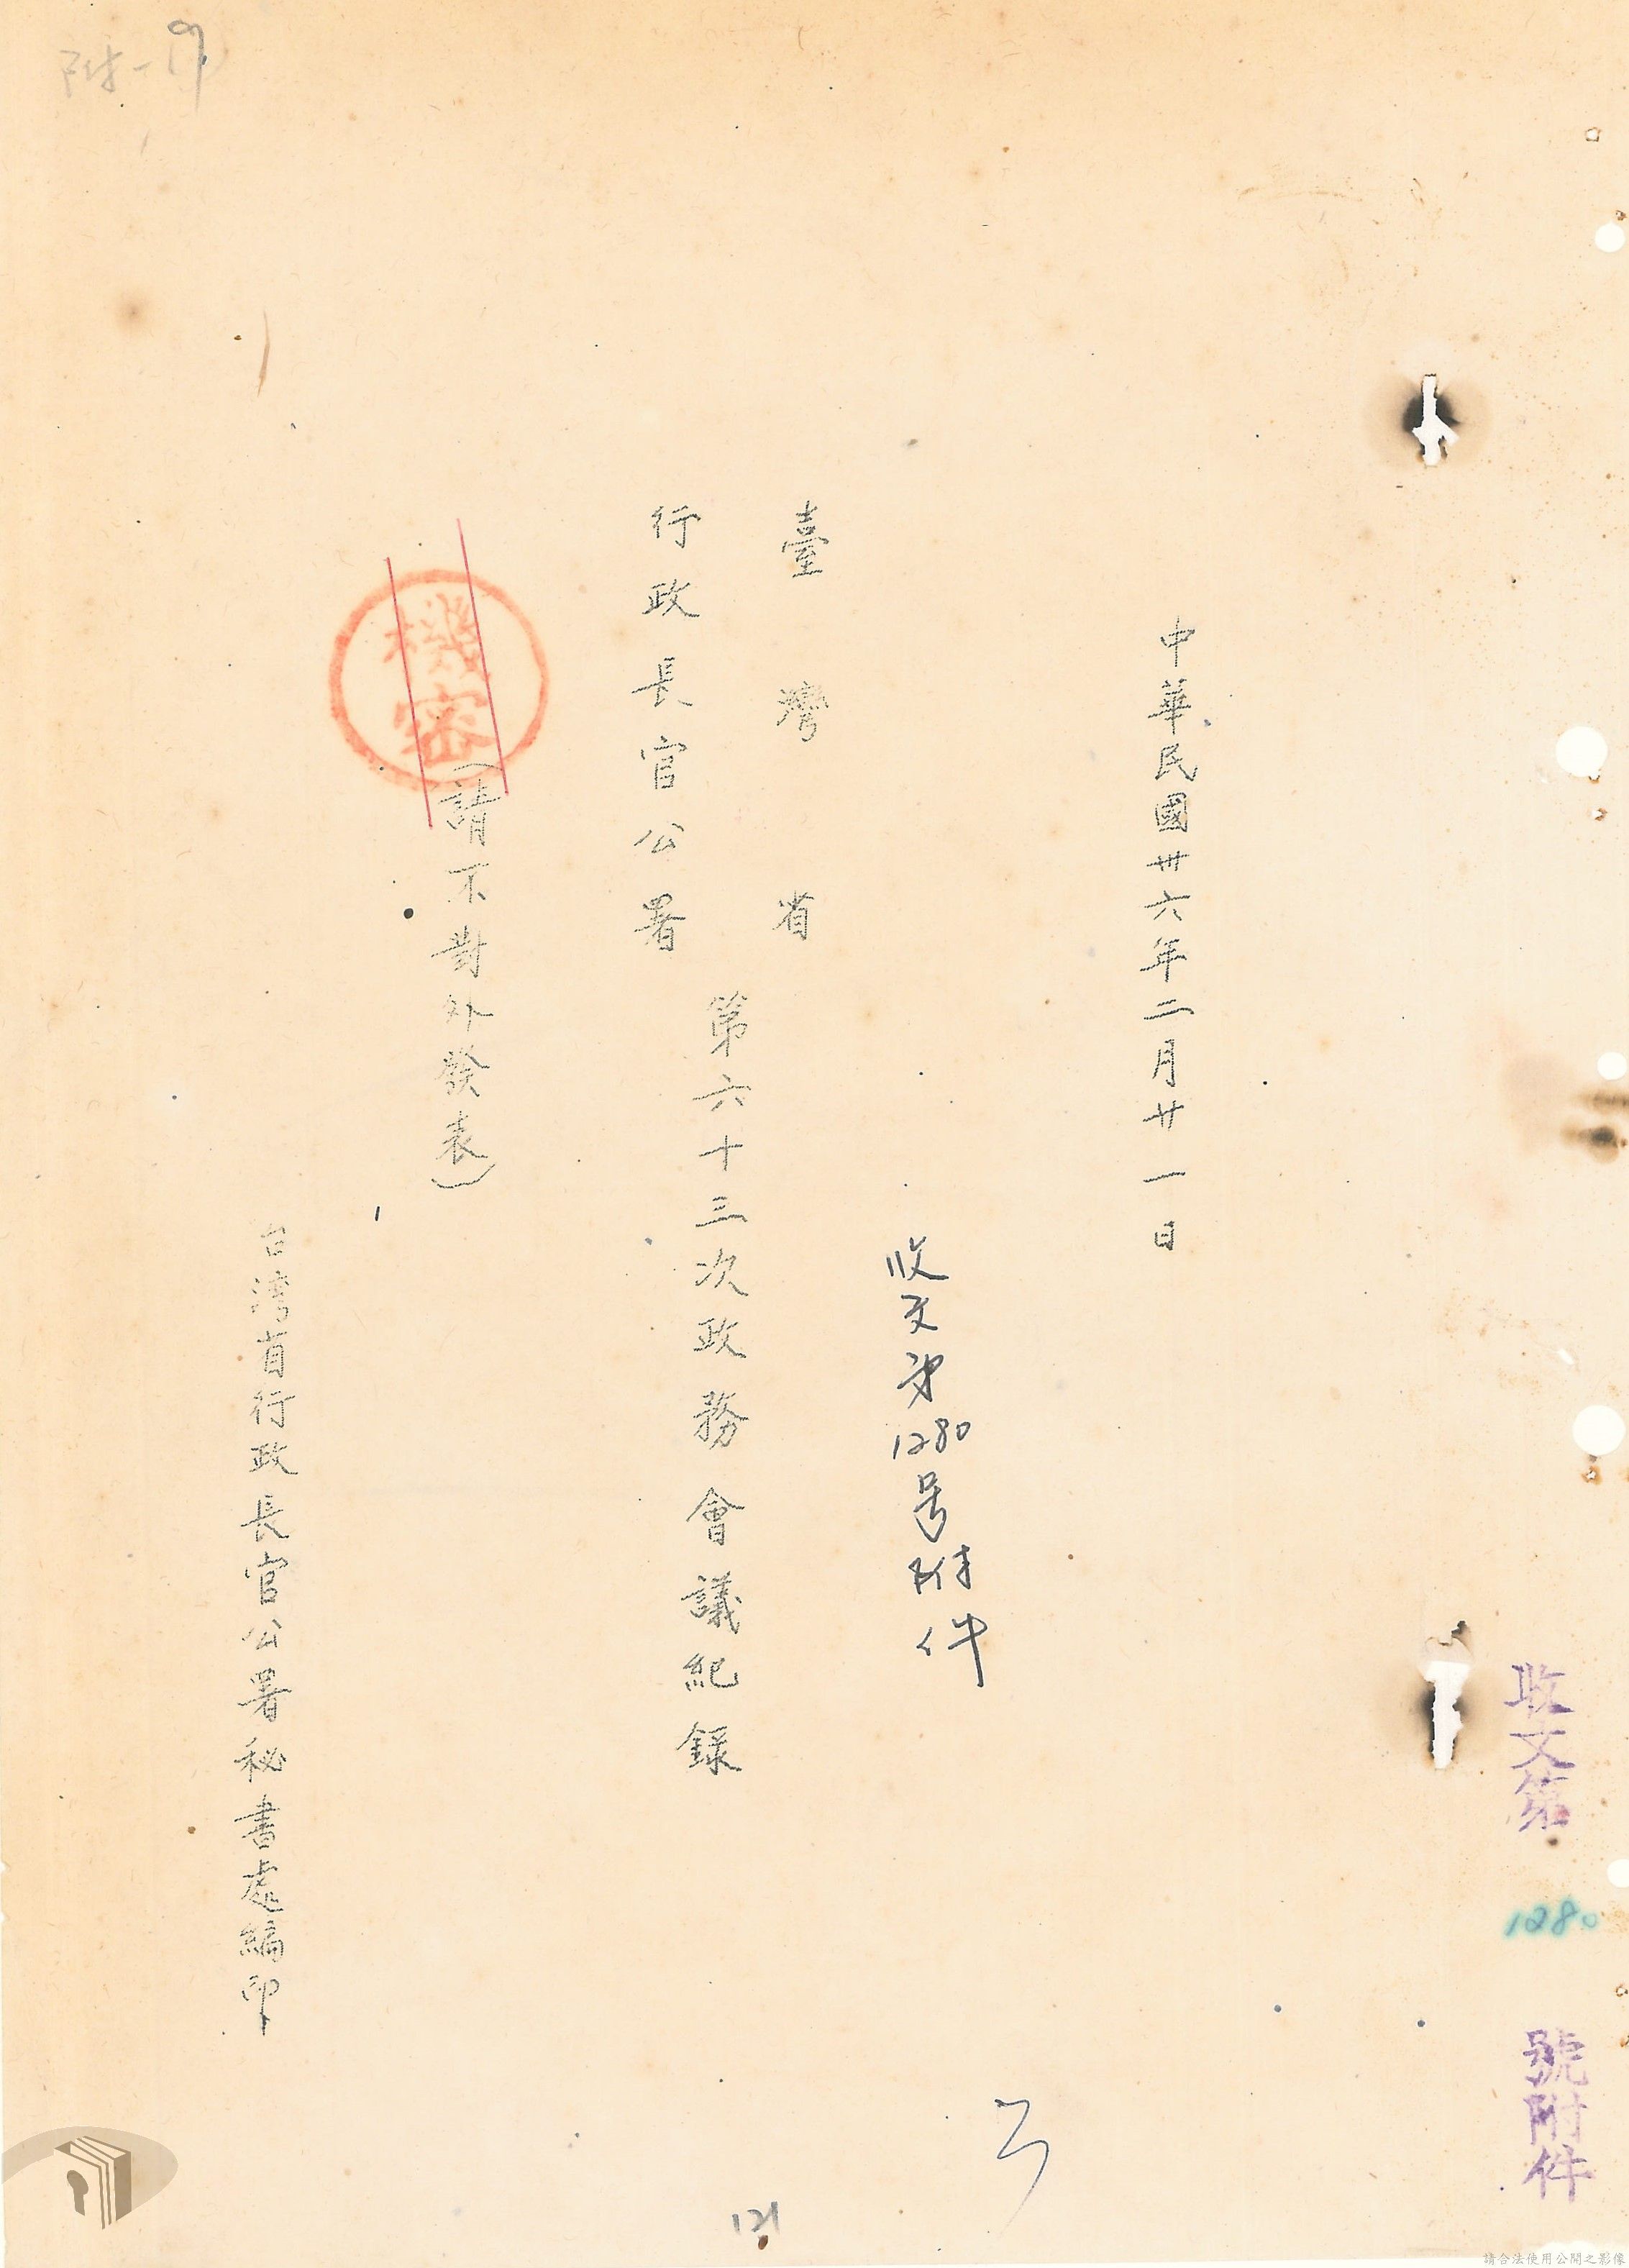 收文第 1280 號附件
中華民國卅六年二月廿一日
收文第1280号附件
臺灣省
行政長官公署
第六十三次政務會議紀錄
機密
(請不對外發表)
台湾省行政長官公署秘書處編印
附-19
121
請合法使用公開之影像